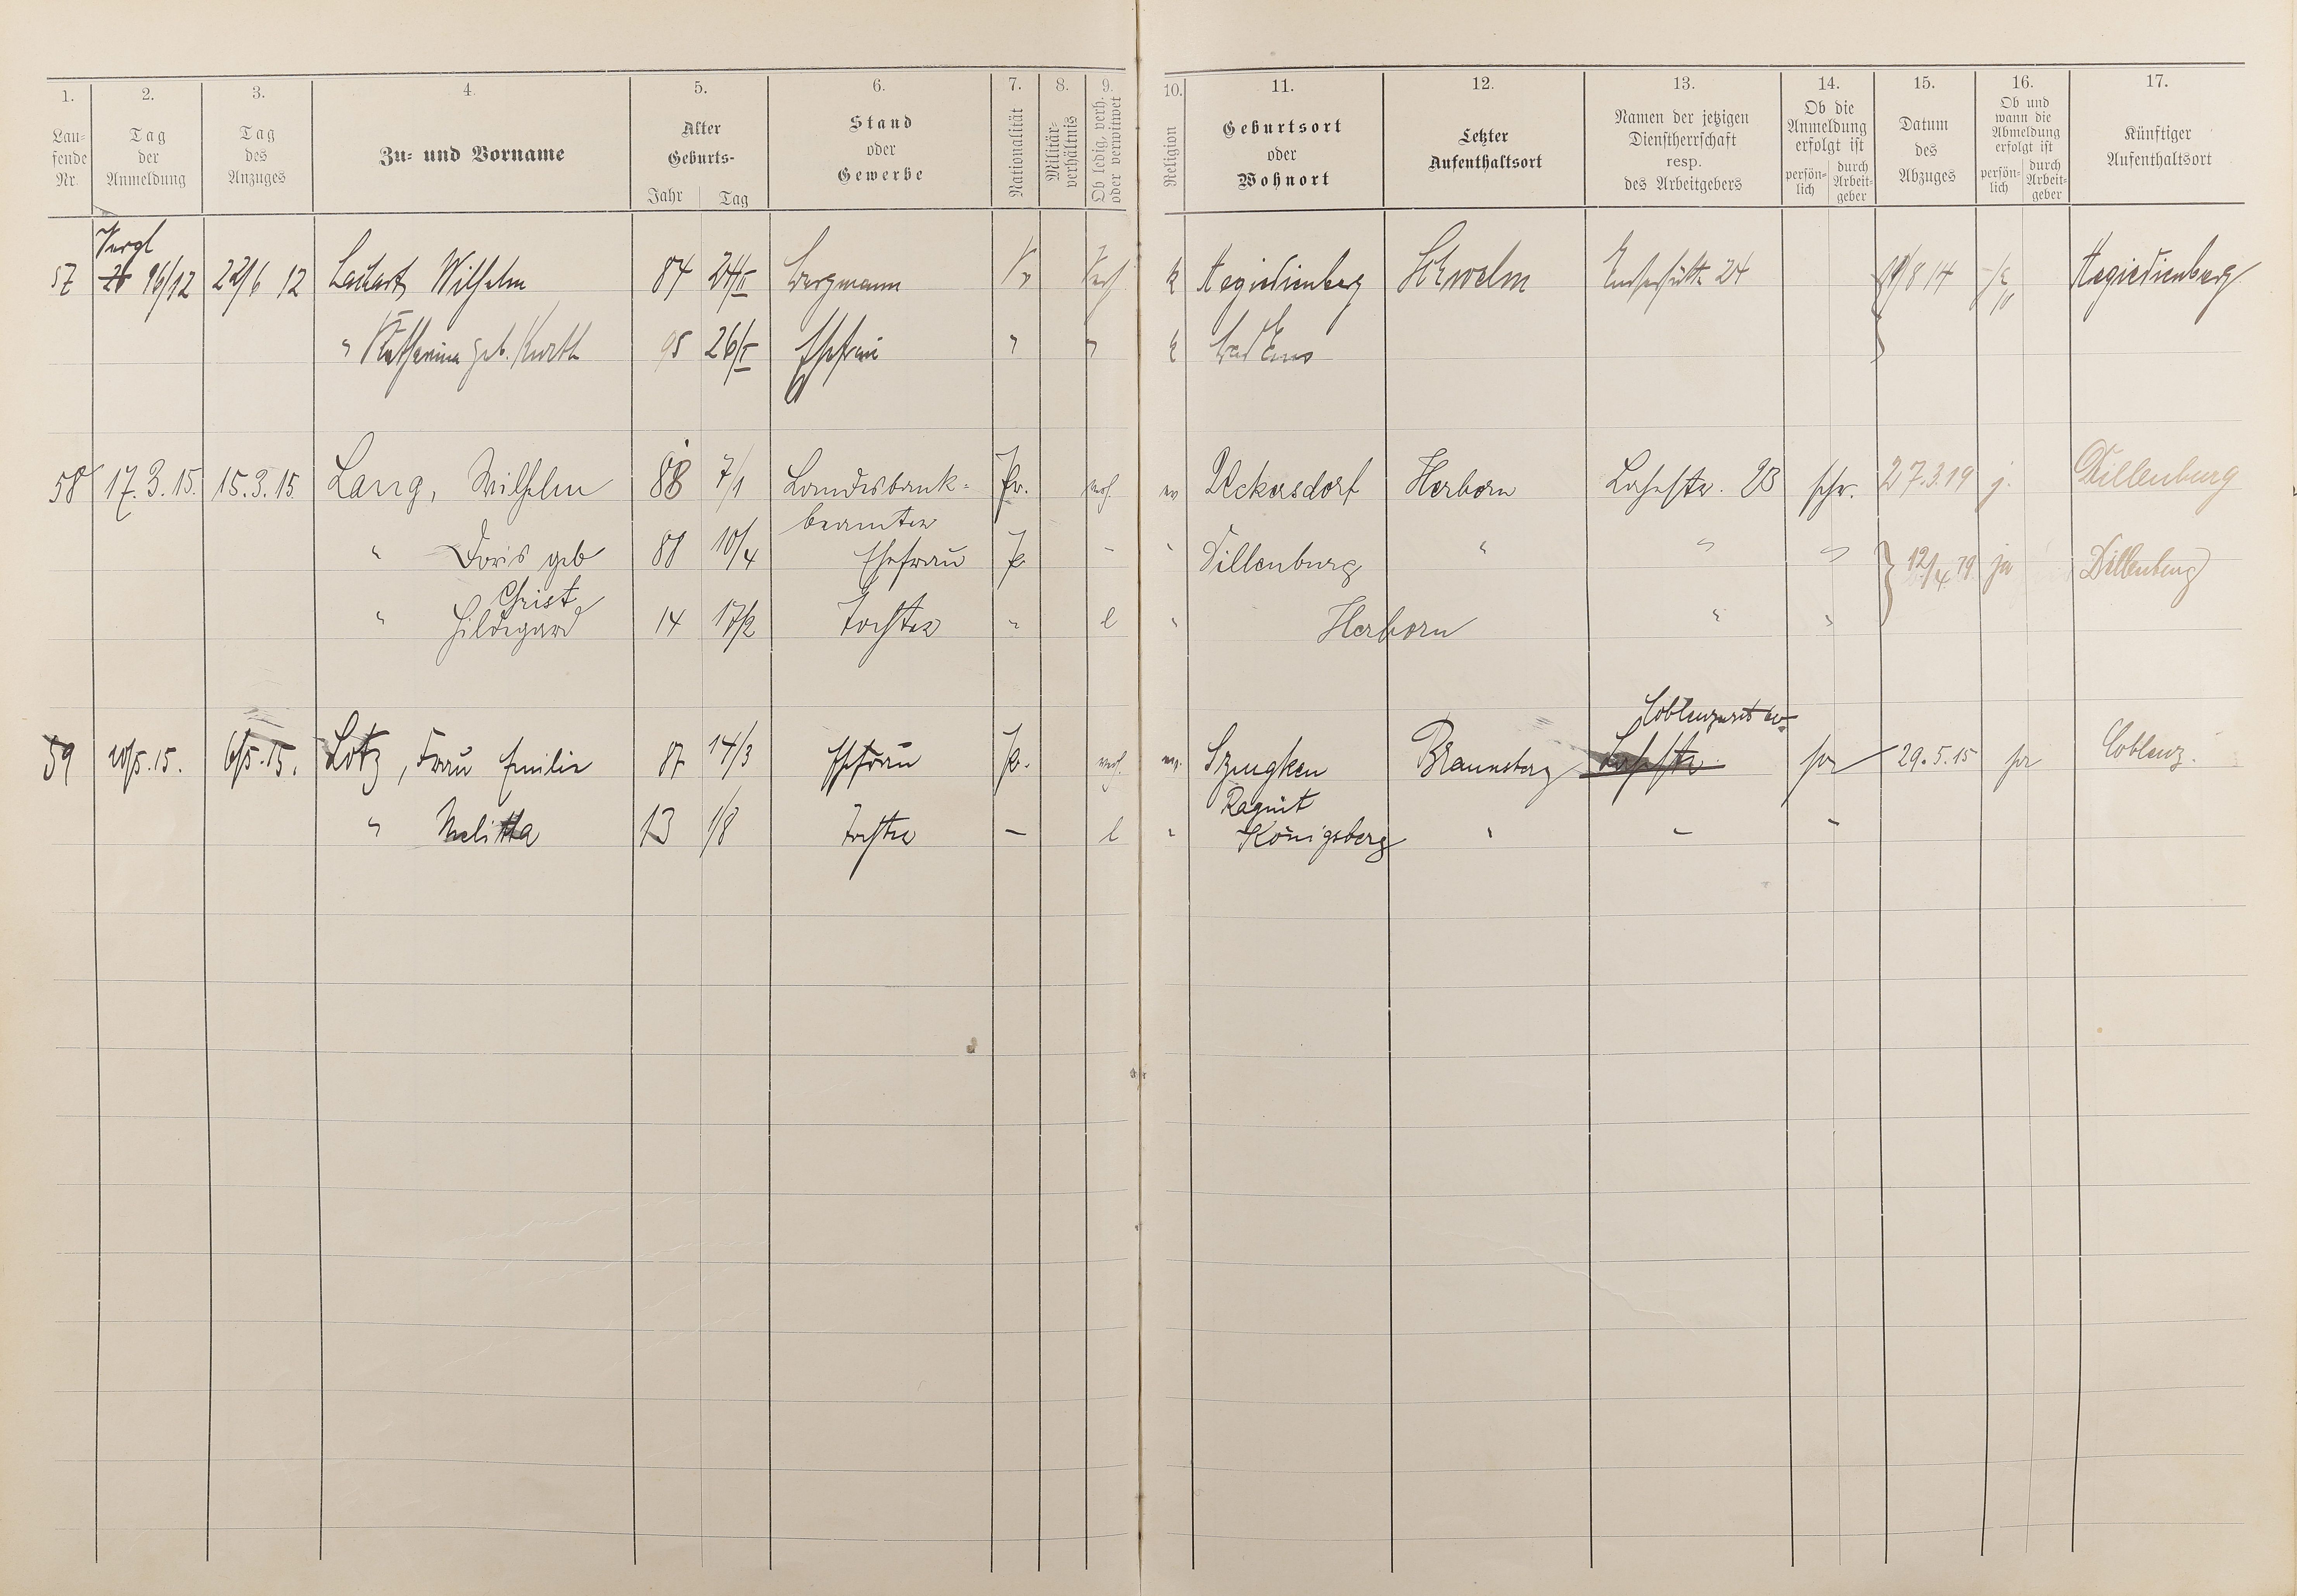 1. 2. 3. 4. 5. 6. 7. 8. 9. 10. 11. 12. 13. 14. 15. 16. 17.
Lau-
fende
Nr.
Tag
der
Anmeldung
Tag
des
Anzuges
Zu- und Vorname
Alter
Geburts-
Jahr Tag
Stand
oder
Gewerbe
Nationalität
Militär-
verhältnis
Ob ledig, verh.
oder verwitwet
Religion
Geburtsort
oder
Wohnort
Letzter
Aufenthaltsort
Namen der jetzigen
Dienstherrschaft
resp.
des Arbeitgebers
Ob die
Anmeldung
erfolgt ist
persön-
lich
durch
Arbeit-
geber
Datum
des
Abzuges
Ob und
wann die
Abmeldung
erfolgt ist
persön-
lich
durch
Arbeit-
geber
Künftiger
Aufenthaltsort
Vergl
57 26 96/12 22/6 12 Wilhelm 84 24/II Bergmann Pr Verh k Aegidienberg Schwelm 24 8 14 Aegiedienberg
" Katharina geb. Kurth 95 26/V Ehefrau " " k Bad Ems
58 17.3.15. 15.3.15 Lang, Wilhelm 88 7/1 Landesbank- Pr. verh. ev Uckersdorf Herborn Lahnstr. 23 schr. 27.3.19 j. Dillenburg
beamter
" Doris geb 88 10/4 Ehefrau P - " Dillenburg " " " 12/4 19. ja Dillenburg
Christ
" Hildegard 14 17/2 Tochter " l " Herborn " "
Coblenzerstr
59 10/5.15. 6/5.15. Lotz, Frau Emilie 87 14/3 Ehefrau Pr. verh. ev. Szugken Braunsberg Lahnstr. 29.5.15 Coblenz.
Ragnit
" Melitta 13 1/8 Tochter - l " Königsberg " - -